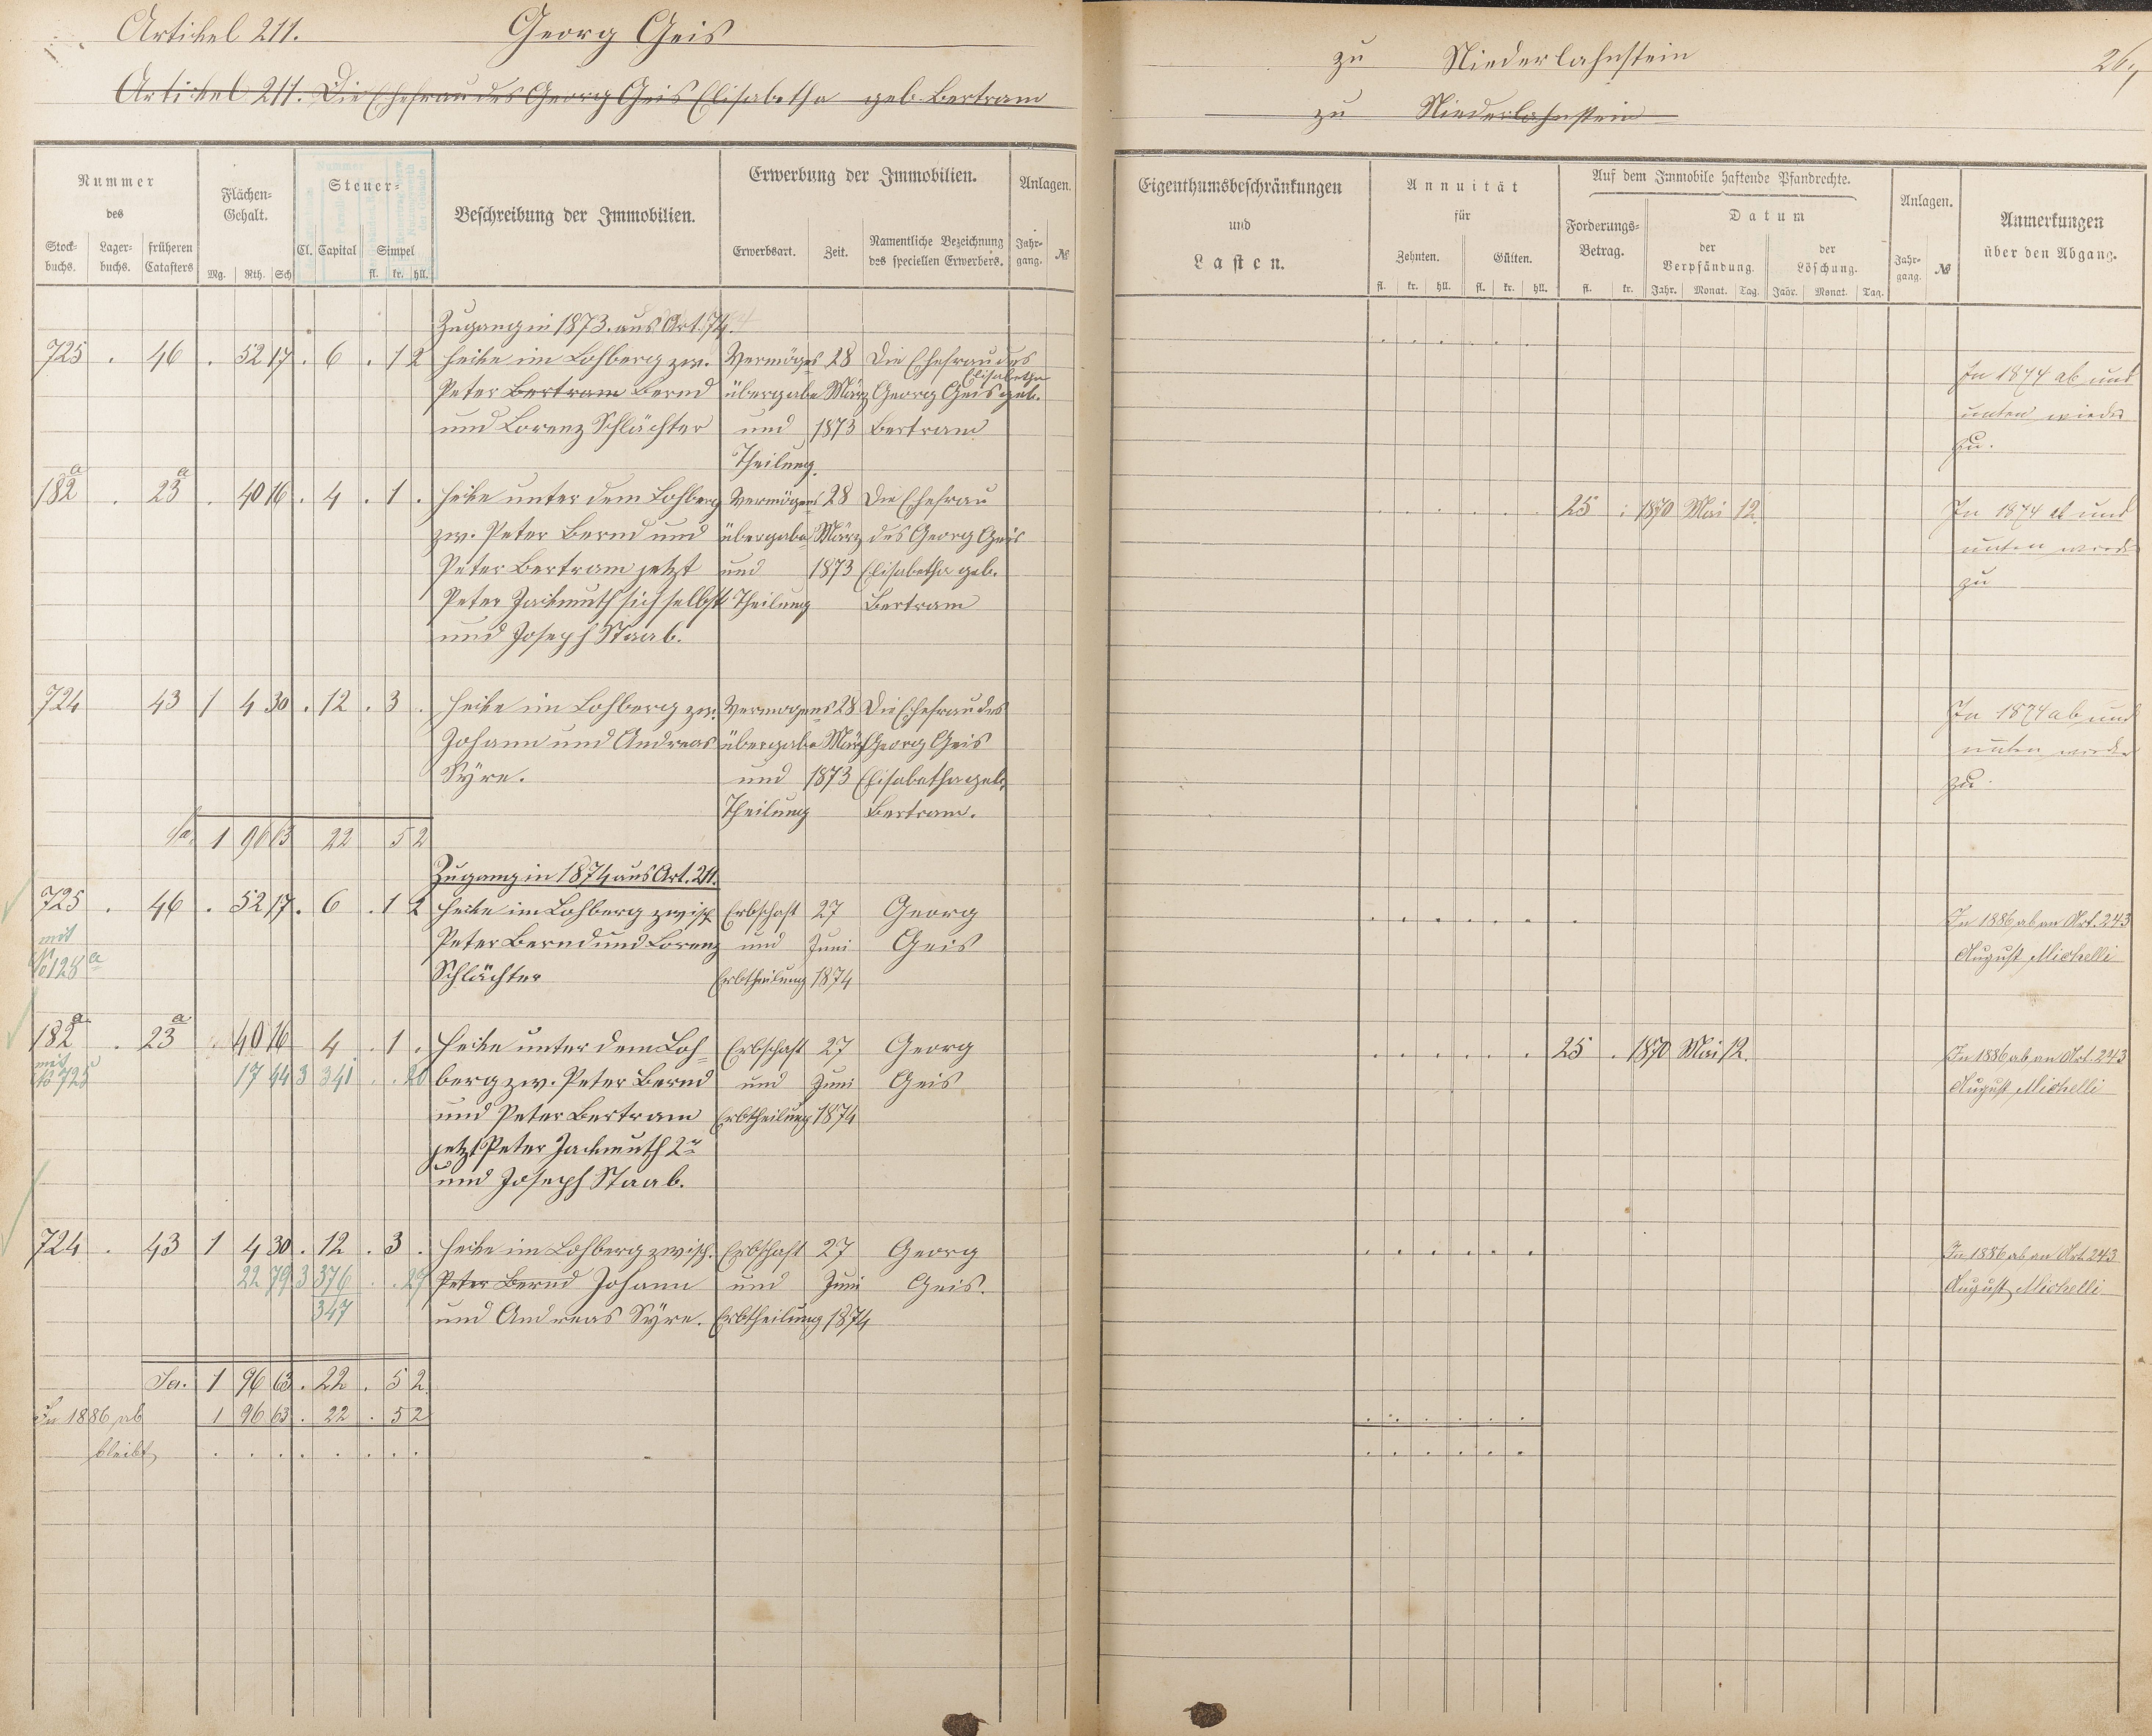 Artikel 211. Georg Geis
Artikel 211. Die Ehefrau des Georg Geis Elisabetha geb. Bertram
Nummer
des
Stock-
buchs.
Lager-
buchs.
früheren
Catasters
Flächen-
Gehalt.
Mg. Rth. Sch
Steuer-
Cl. Capital Simpel
fl. kr. hll.
Beschreibung der Immobilien.
Erwerbung der Immobilien.
Erwerbsart. Zeit. Namentliche Bezeichnung
des speciellen Erwerbers.
Anlagen.
Jahr-
gang. №
Zugang in 1873. aus Art. 74.
725 . 46 . 52 17 . 6 . 1 2 Hecke im Lohberg zw. Vermögens 28 Die Ehefrau des
Elisabetha
Peter Bertram Bernd übergabe März Georg Geis geb.
und Lorenz Schlächter und 1873 Bertram
Theilung.
182a . 23a . 40 16 . 4 . 1 . Hecke unter dem Lohberg Vermögens 28 Die Ehefrau
zw. Peter Bernd und übergabe März des Georg Geis
Peter Bertram jetzt und 1873 Elisabetha geb.
Peter Jackmuth sich selbst Theilung Bertram
und Joseph Staab.
724 43 1 4 30 . 12 . 3 . Hecke im Lohberg zw. Vermogens 28 Die Ehefrau des
Johann und Andreas übergabe März Georg Geis
Syre. und 1873 Elisabetha geb.
Theilung Bertram.
Sa. 1 96 63 22 5 2
Zugang in 1874 aus Art. 211.
725 . 46 . 52 17 . 6 . 1 2 Hecke im Lohberg zwisch Erbschaft 27 Georg
mit Peter Bernd und Lorenz und Juni Geis
Schlächter Erbtheilung 1874
182a . 23a . 40 16 4 . 1 . Hecke unter dem Loh- Erbschaft 27 Georg
mit
No 725 17 44 3 341 . . berg zw. Peter Bernd und Juni Geis
und Peter Bertram Erbtheilung 1874
jetzt Peter Jackmuth 2r
und Joseph Staab.
724 . 43 1 4 30 . 12 . 3 . Hecke im Lohberg zwisch. Erbschaft 27 Georg
22 79 3 376 . . 27 Peter Bernd Johann und Juni Geis.
347 und Andreas Syre. Erbtheilung 1874
Sa. 1 96 63 . 22 . 5 2
In 1886 ab 1 96 63 . 22 . 5 2
bleibt . . . . . . . .
zu Niederlahnstein
zu Niederlahnstein
Eigenthumsbeschränkungen
und
Lasten.
Annuität
für
Zehnten. Gülten.
fl. kr. hll. fl. kr. hll.
Auf dem Immobile haftende Pfandrechte.
Forderungs-
Betrag.
fl. kr.
Datum
der
Verpfändung.
der
Löschung.
Jahr. Monat. Tag. Jahr. Monat. Tag.
Anlagen.
Jahr-
gang. №
Anmerkungen
über den Abgang.
In 1874 ab und
unten wieder
zu.
25 : 1870 Mai 12. In 1874 ab und
unten wieder
zu
In 1874 ab und
unten wieder
zu.
In 1886 ab an Art. 243
August Michelli
25 . 1870 Mai 12. In 1886 ab an Art. 243
August Michelli
In 1886 ab an Art 243
August Michelli